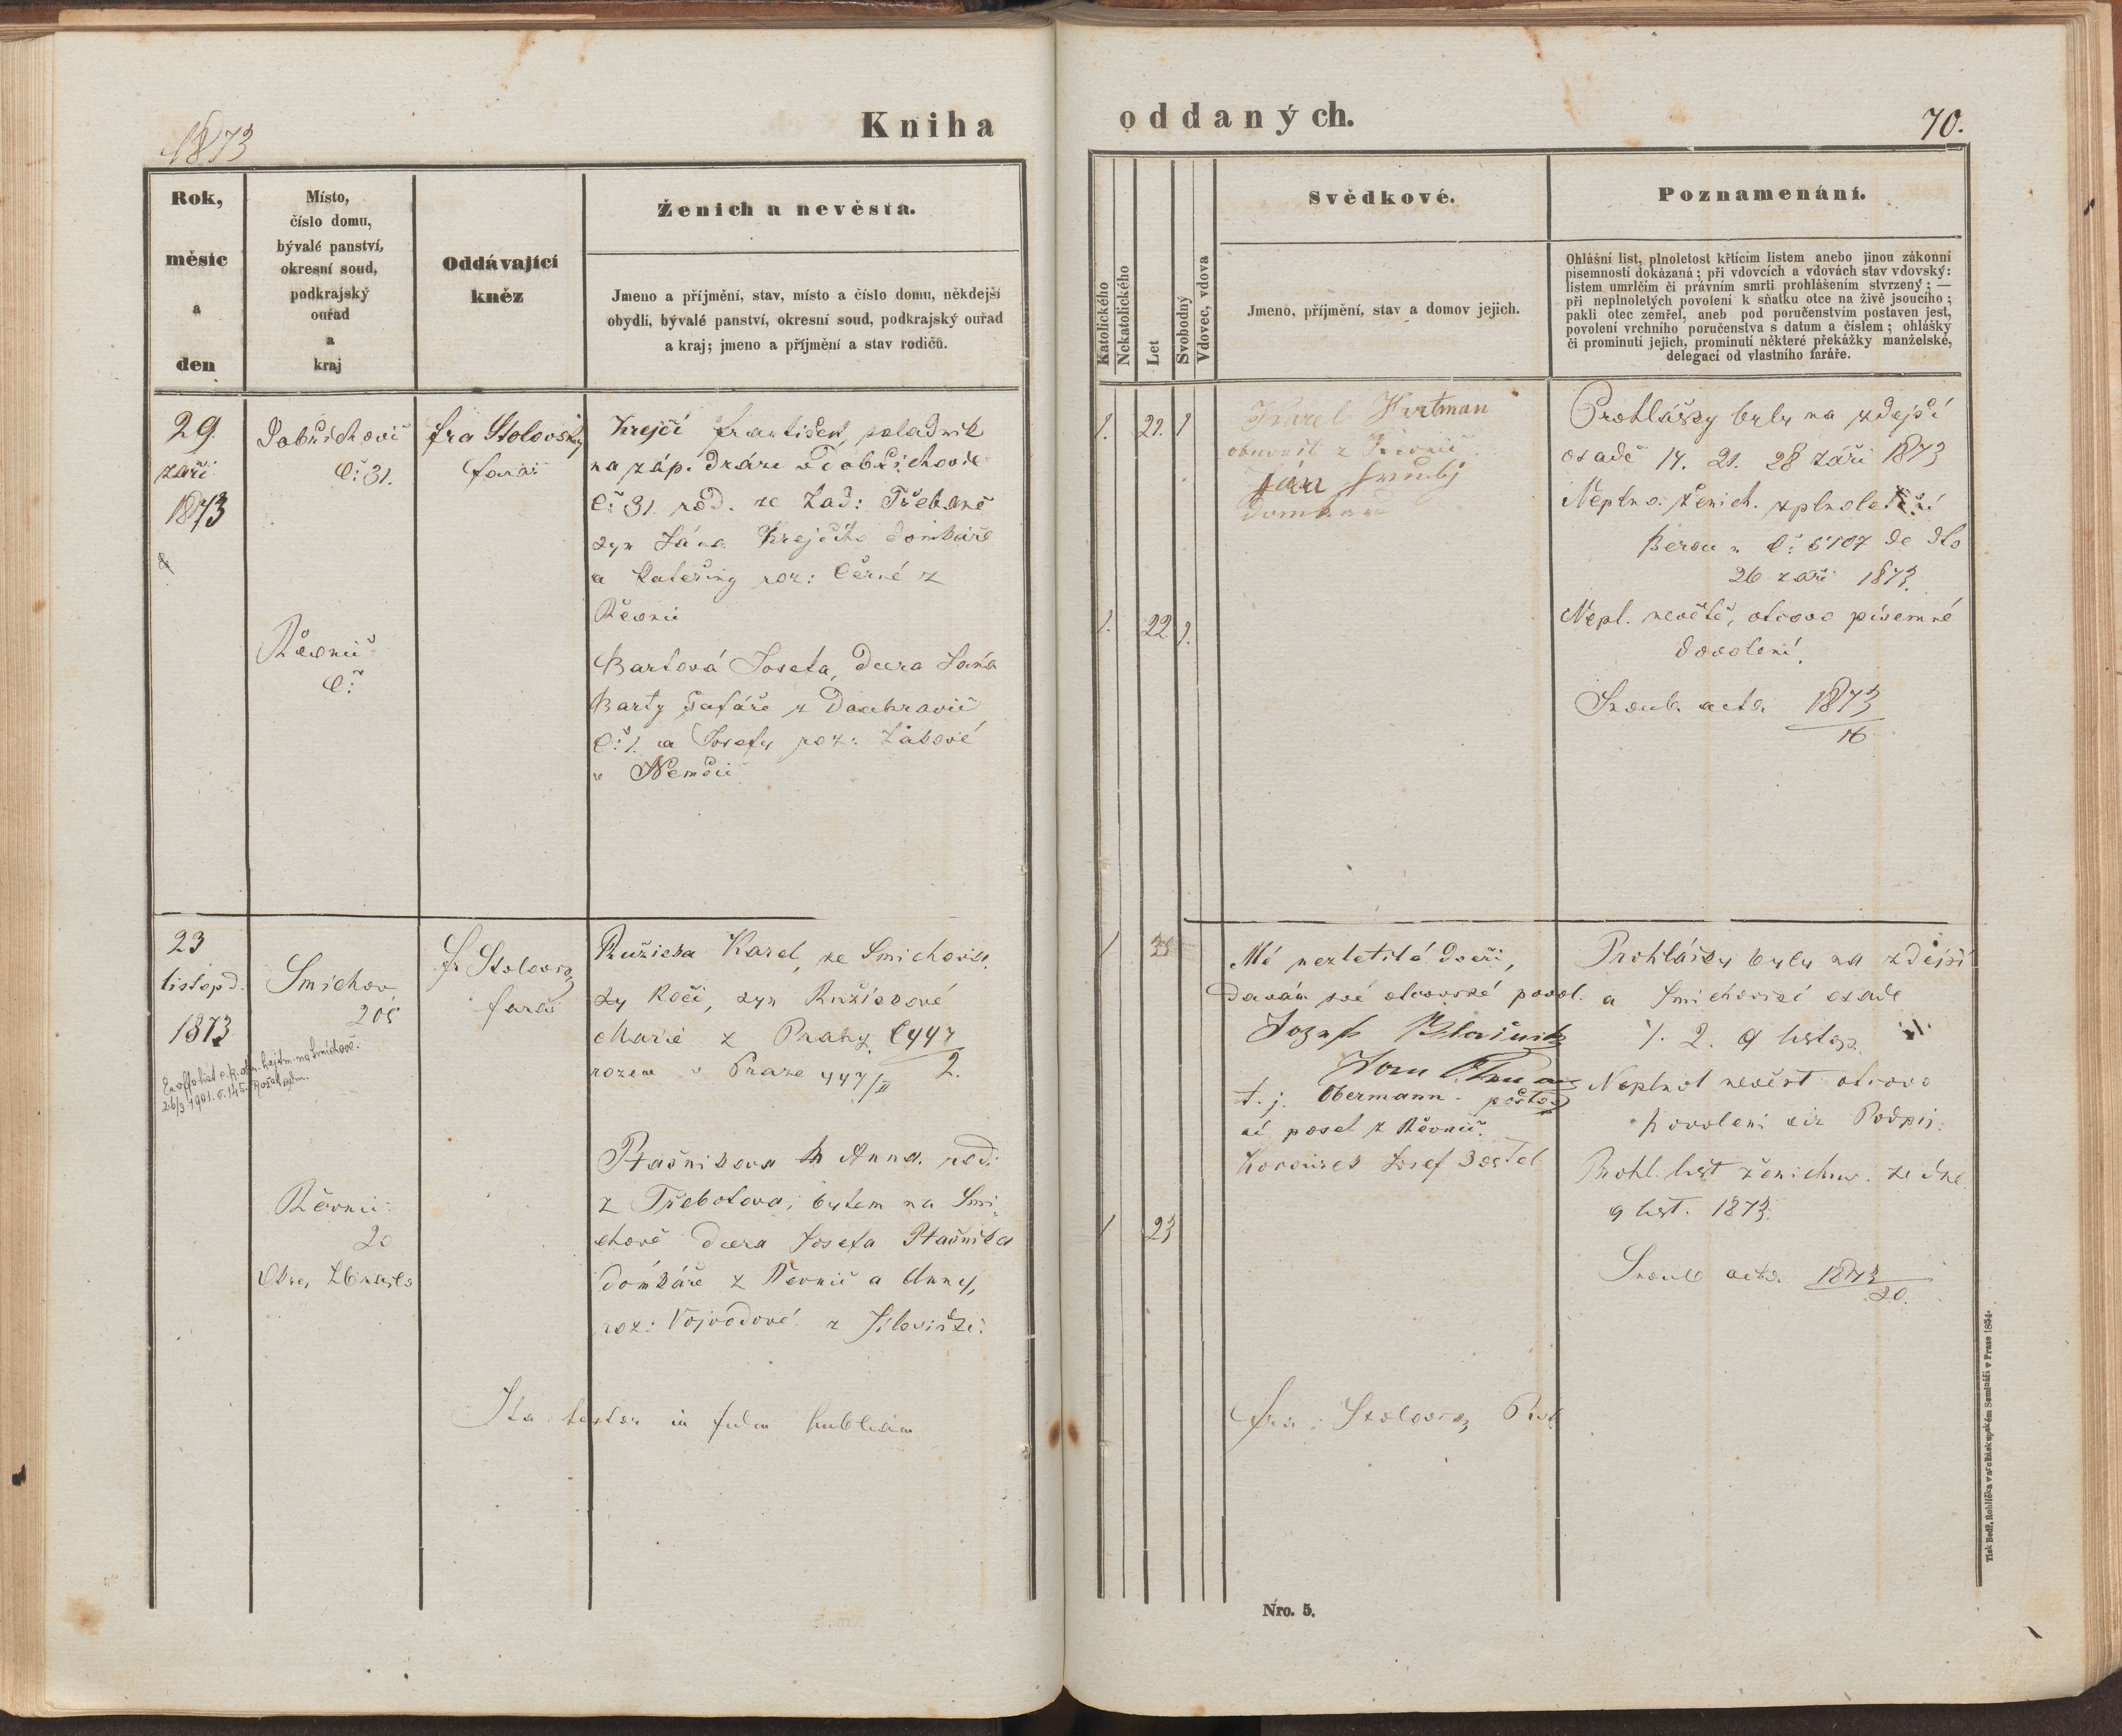 1873
Kniha
Rok,
měsíc
a
den
Místo,
číslo domu,
bývalé panství,
okresní soud,
podkrajský
ouřad
a
kraj
Oddávající
kněz
Ženich a nevěsta.
Jmeno a příjmění, stav, místo a číslo domu, někdejší
obydlí, bývalé panství, okresní soud, podkrajský ouřad
a kraj; jmeno a příjmění a stav rodičů.
29.
září
1873
Dobřichovic
č: 31.
fra Stolovský
farář
Krejčí František,
na záp. dráze v Dobřichovic
č: 31. rod. ze Zad: Třebaně
syn Jána Krejčího domkáře
a Kateřiny roz: Černé z
Řevnic
Řevnic
č:
Bartová Josefa, dcera Jana
Barty šafáře z
č: 1. a Josefy roz: Žákové
z Němčic
23
listopd.
1873
26/3 1901.
Smíchov
205
fr Stolovsky
farář
Růžicka Karel, ze Smíchova
syn Růžickové
Marie z Prahy č 447
2.
rozen v Praze 447/II
Řevnic:
20
Okres Zbraslav
Ptačnikova Anna, rod:
z Třebotova, bytem na Smí
chově dcera Josefa Ptačnika
domkáře z Řevnic a Anny,
roz: Vojvodové z Jílovišť:
Ita testor in fidem publicam
oddaných.
70.
Katolického
Nekatolického
Let
Svobodný
Vdovec, vdova
Svědkové.
Jmeno, příjmění, stav a domov jejich.
Poznamenání.
Ohlášní list, plnoletost křtícím listem anebo jinou zákonní
písemností dokázaná; při vdovcích a vdovách stav vdovský:
listem umrlčím či právním smrti prohlášením stvrzený; —
při neplnoletých povolení k sňatku otce na živě jsoucího;
pakli otec zemřel, aneb pod poručenstvím postaven jest,
povolení vrchního poručenstva s datum a číslem; ohlášky
či prominutí jejich, prominutí některé překážky manželské,
delegací od vlastního faráře.
1. 22. 1
Karel Hartman
obuvník z Řevnic
Ján
domkář
Prohlášky byly na zdejší
osadě 14. 21. 28 září 1873
Neplno. ženich.
Beroun č: 5107 de dto
26 září 1873.
1. 22 1.
Nepl. nevěstě, otcovo písemné
dovolení.
Snoub. acta 1873
16
1
Mé nezletilé dceři,
davám své otcovské povol.
Jozef Ptačnik
t. j. Obermann
posel z Řevnic.
Koroušek Josef
Prohlášky byly na zdejší
a Smíchovské osadě
1. 2. 9 listop.
Neplnol nevěst otcovo
Povolení viz Podpis:
Prohl. list ženichův. ze dne
9 list. 1873.
1 23
Snoub acta 1873
20.
fra: Stolovsky
Nro. 5.
Tisk Bedř. Rohlíčka v arcibiskupském Semináři v Praze 1854.